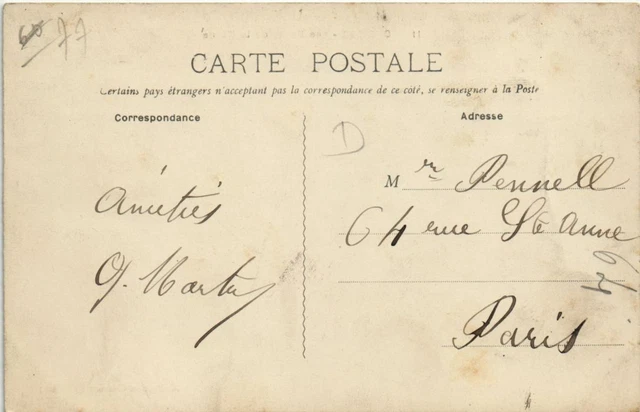 77
CARTE POSTALE
Certains pays étrangers n'acceptant pas la correspondance de ce côté, se renseigner à la Poste
Correspondance
Adresse
D
Amitiés
Mr Pennell
64 rue Ste Anne
Paris